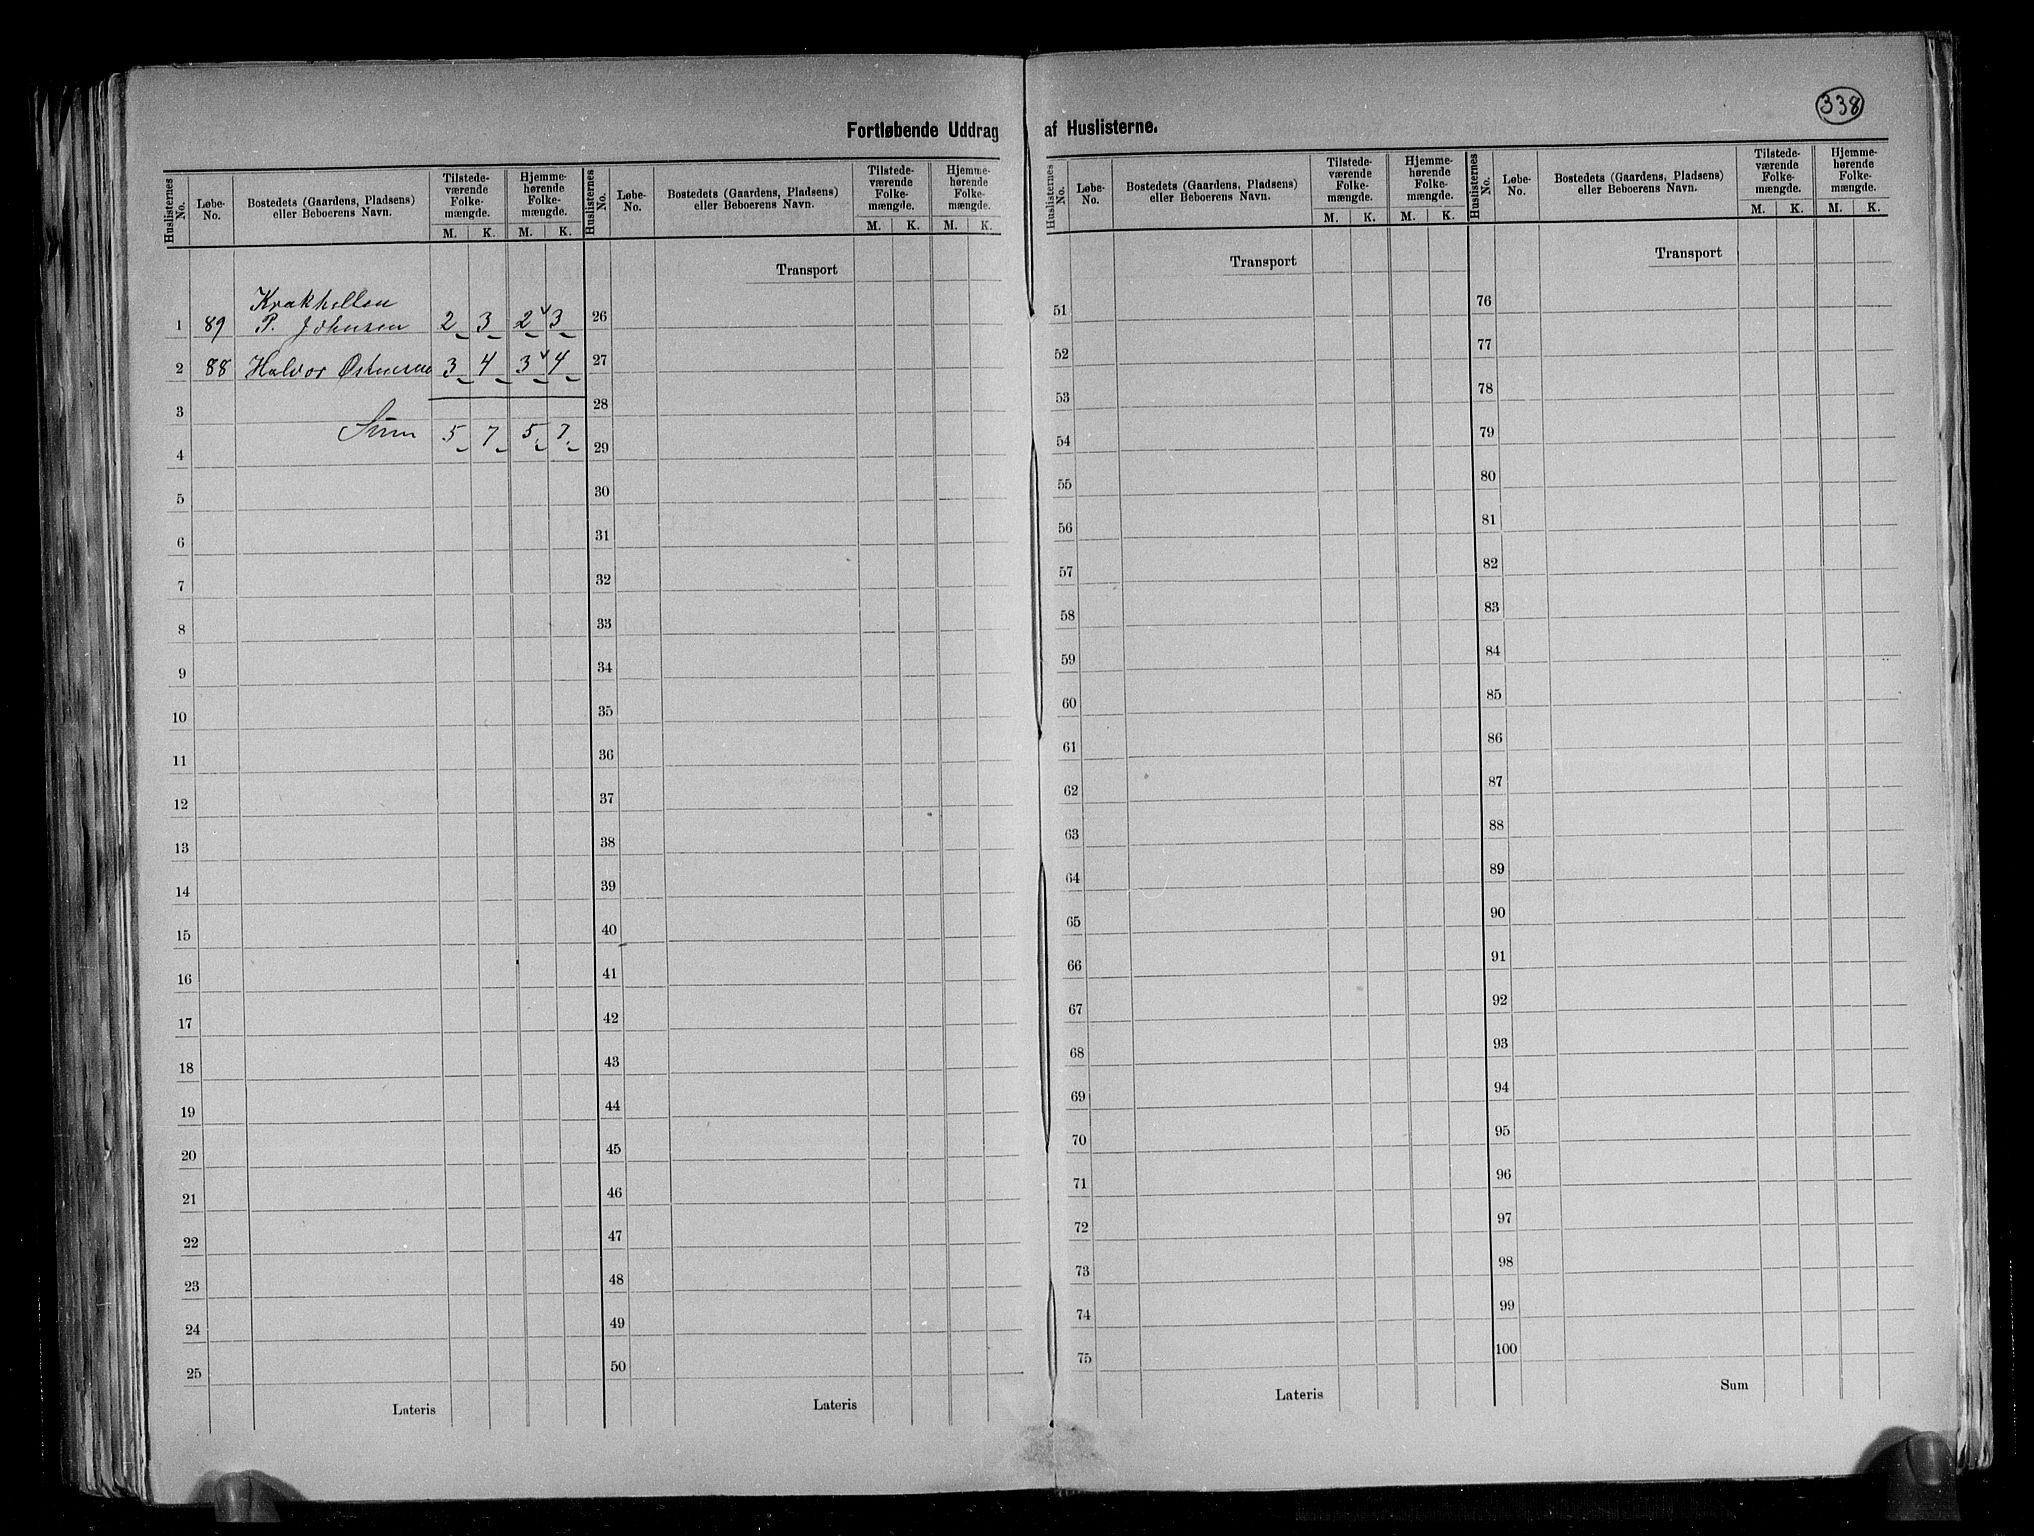 338
Fortløbende Uddrag af Huslisterne.
Huslisternes No. Løbe-No. Bostedets (Gaardens, Pladsens) eller Beboerens Navn. Tilstede-værende Folke-mængde. M. K. Hjemme-hørende Folke-mængde. M. K.
Krakhellen
1 89 P. Johnsen 2 3 2 3
2 88 Halvor Østensen 3 4 3 4
3
Sum 5 7 5 7
4
5
6
7
8
9
10
11
12
13
14
15
16
17
18
19
20
21
22
23
24
25
Lateris
Huslisternes No. Løbe-No. Bostedets (Gaardens, Pladsens) eller Beboerens Navn. Tilstede-værende Folke-mængde. M. K. Hjemme-hørende Folke-mængde. M. K.
Transport
26
27
28
29
30
31
32
33
34
35
36
37
38
39
40
41
42
43
44
45
46
47
48
49
50
Lateris
Huslisternes No. Løbe-No. Bostedets (Gaardens, Pladsens) eller Beboerens Navn. Tilstede-værende Folke-mængde. M. K. Hjemme-hørende Folke-mængde. M. K.
Transport
51
52
53
54
55
56
57
58
59
60
61
62
63
64
65
66
67
68
69
70
71
72
73
74
75
Lateris
Huslisternes No. Løbe-No. Bostedets (Gaardens, Pladsens) eller Beboerens Navn. Tilstede-værende Folke-mængde. M. K. Hjemme-hørende Folke-mængde. M. K.
Transport
76
77
78
79
80
81
82
83
84
85
86
87
88
89
90
91
92
93
94
95
96
97
98
99
100
Sum